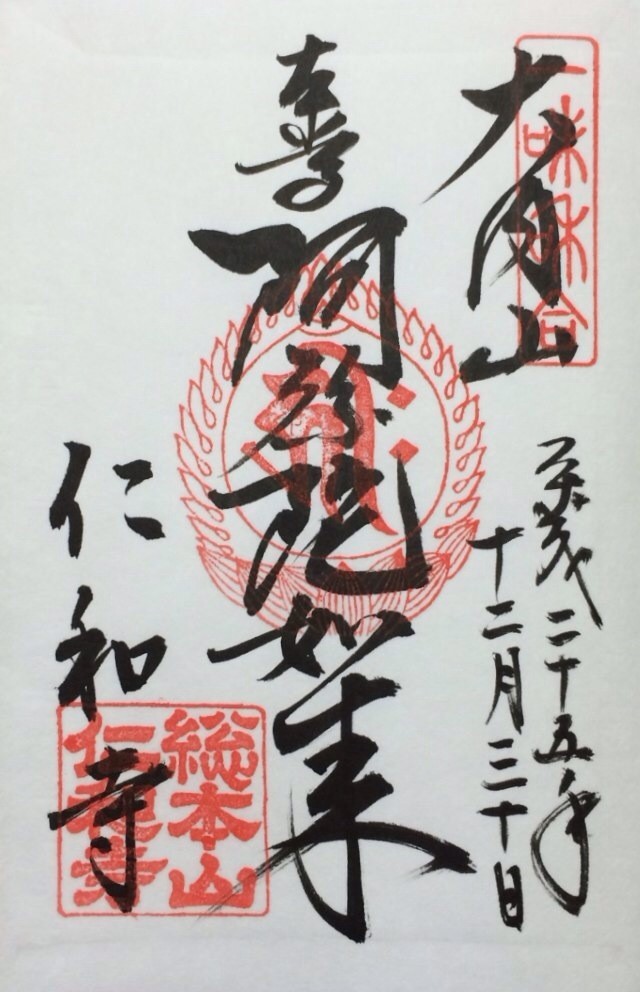 大内山
平成二十五年
十二月三十日
奉拝
阿弥陀如来
仁和寺
一味和合
総本山
仁和寺